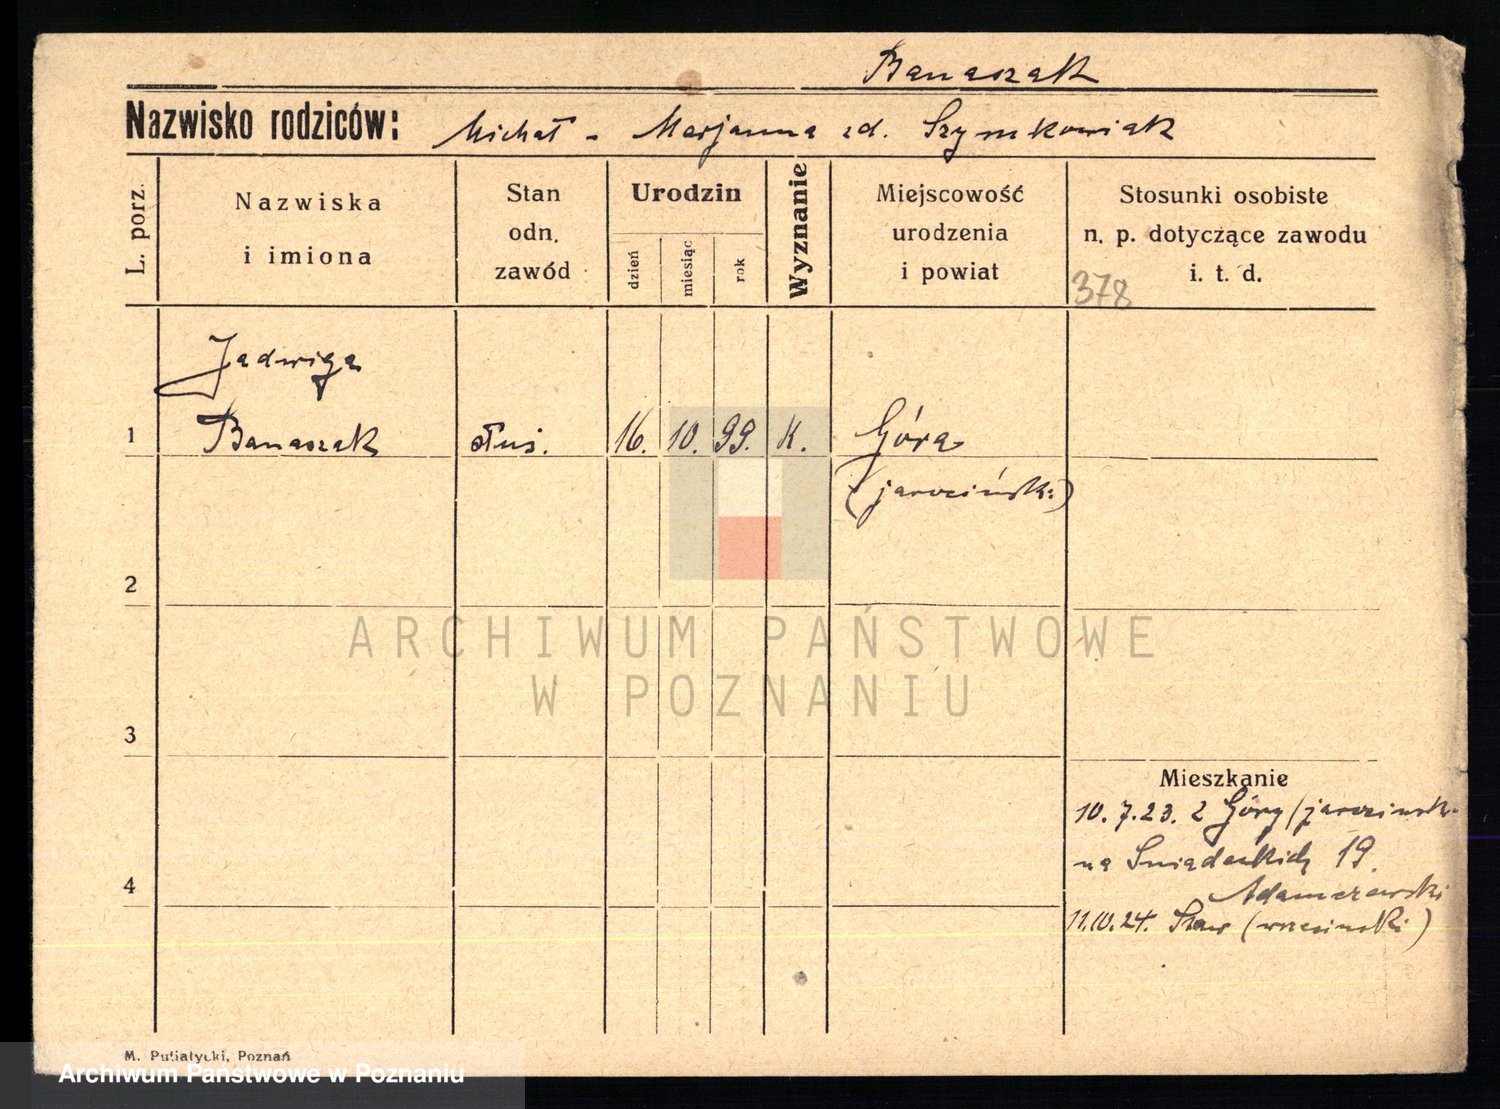 Banaszak
Nazwisko rodziców: Michał - Marjanna zd. Szymkowiak
L. porz.
Nazwiska
i imiona
Stan
odn.
zawód
Urodzin
dzień
miesiąc
rok
Wyznanie
Miejscowość
urodzenia
i powiat
Stosunki osobiste
n. p. dotyczące zawodu
i. t. d.
378
Jadwiga
1 Banaszak służ. 16. 10. 99. K. Góra
(jarocińsk:)
2
ARCHIWUM PAŃSTWOWE
W POZNANIU
3
Mieszkanie
10. 7. 23. z Góry (jarocinsk.
na Sniadeckich 19.
4
Adamczewski
11.10.24. (wrzesinski)
M. Putiatycki, Poznań
Archiwum Państwowe w Poznaniu